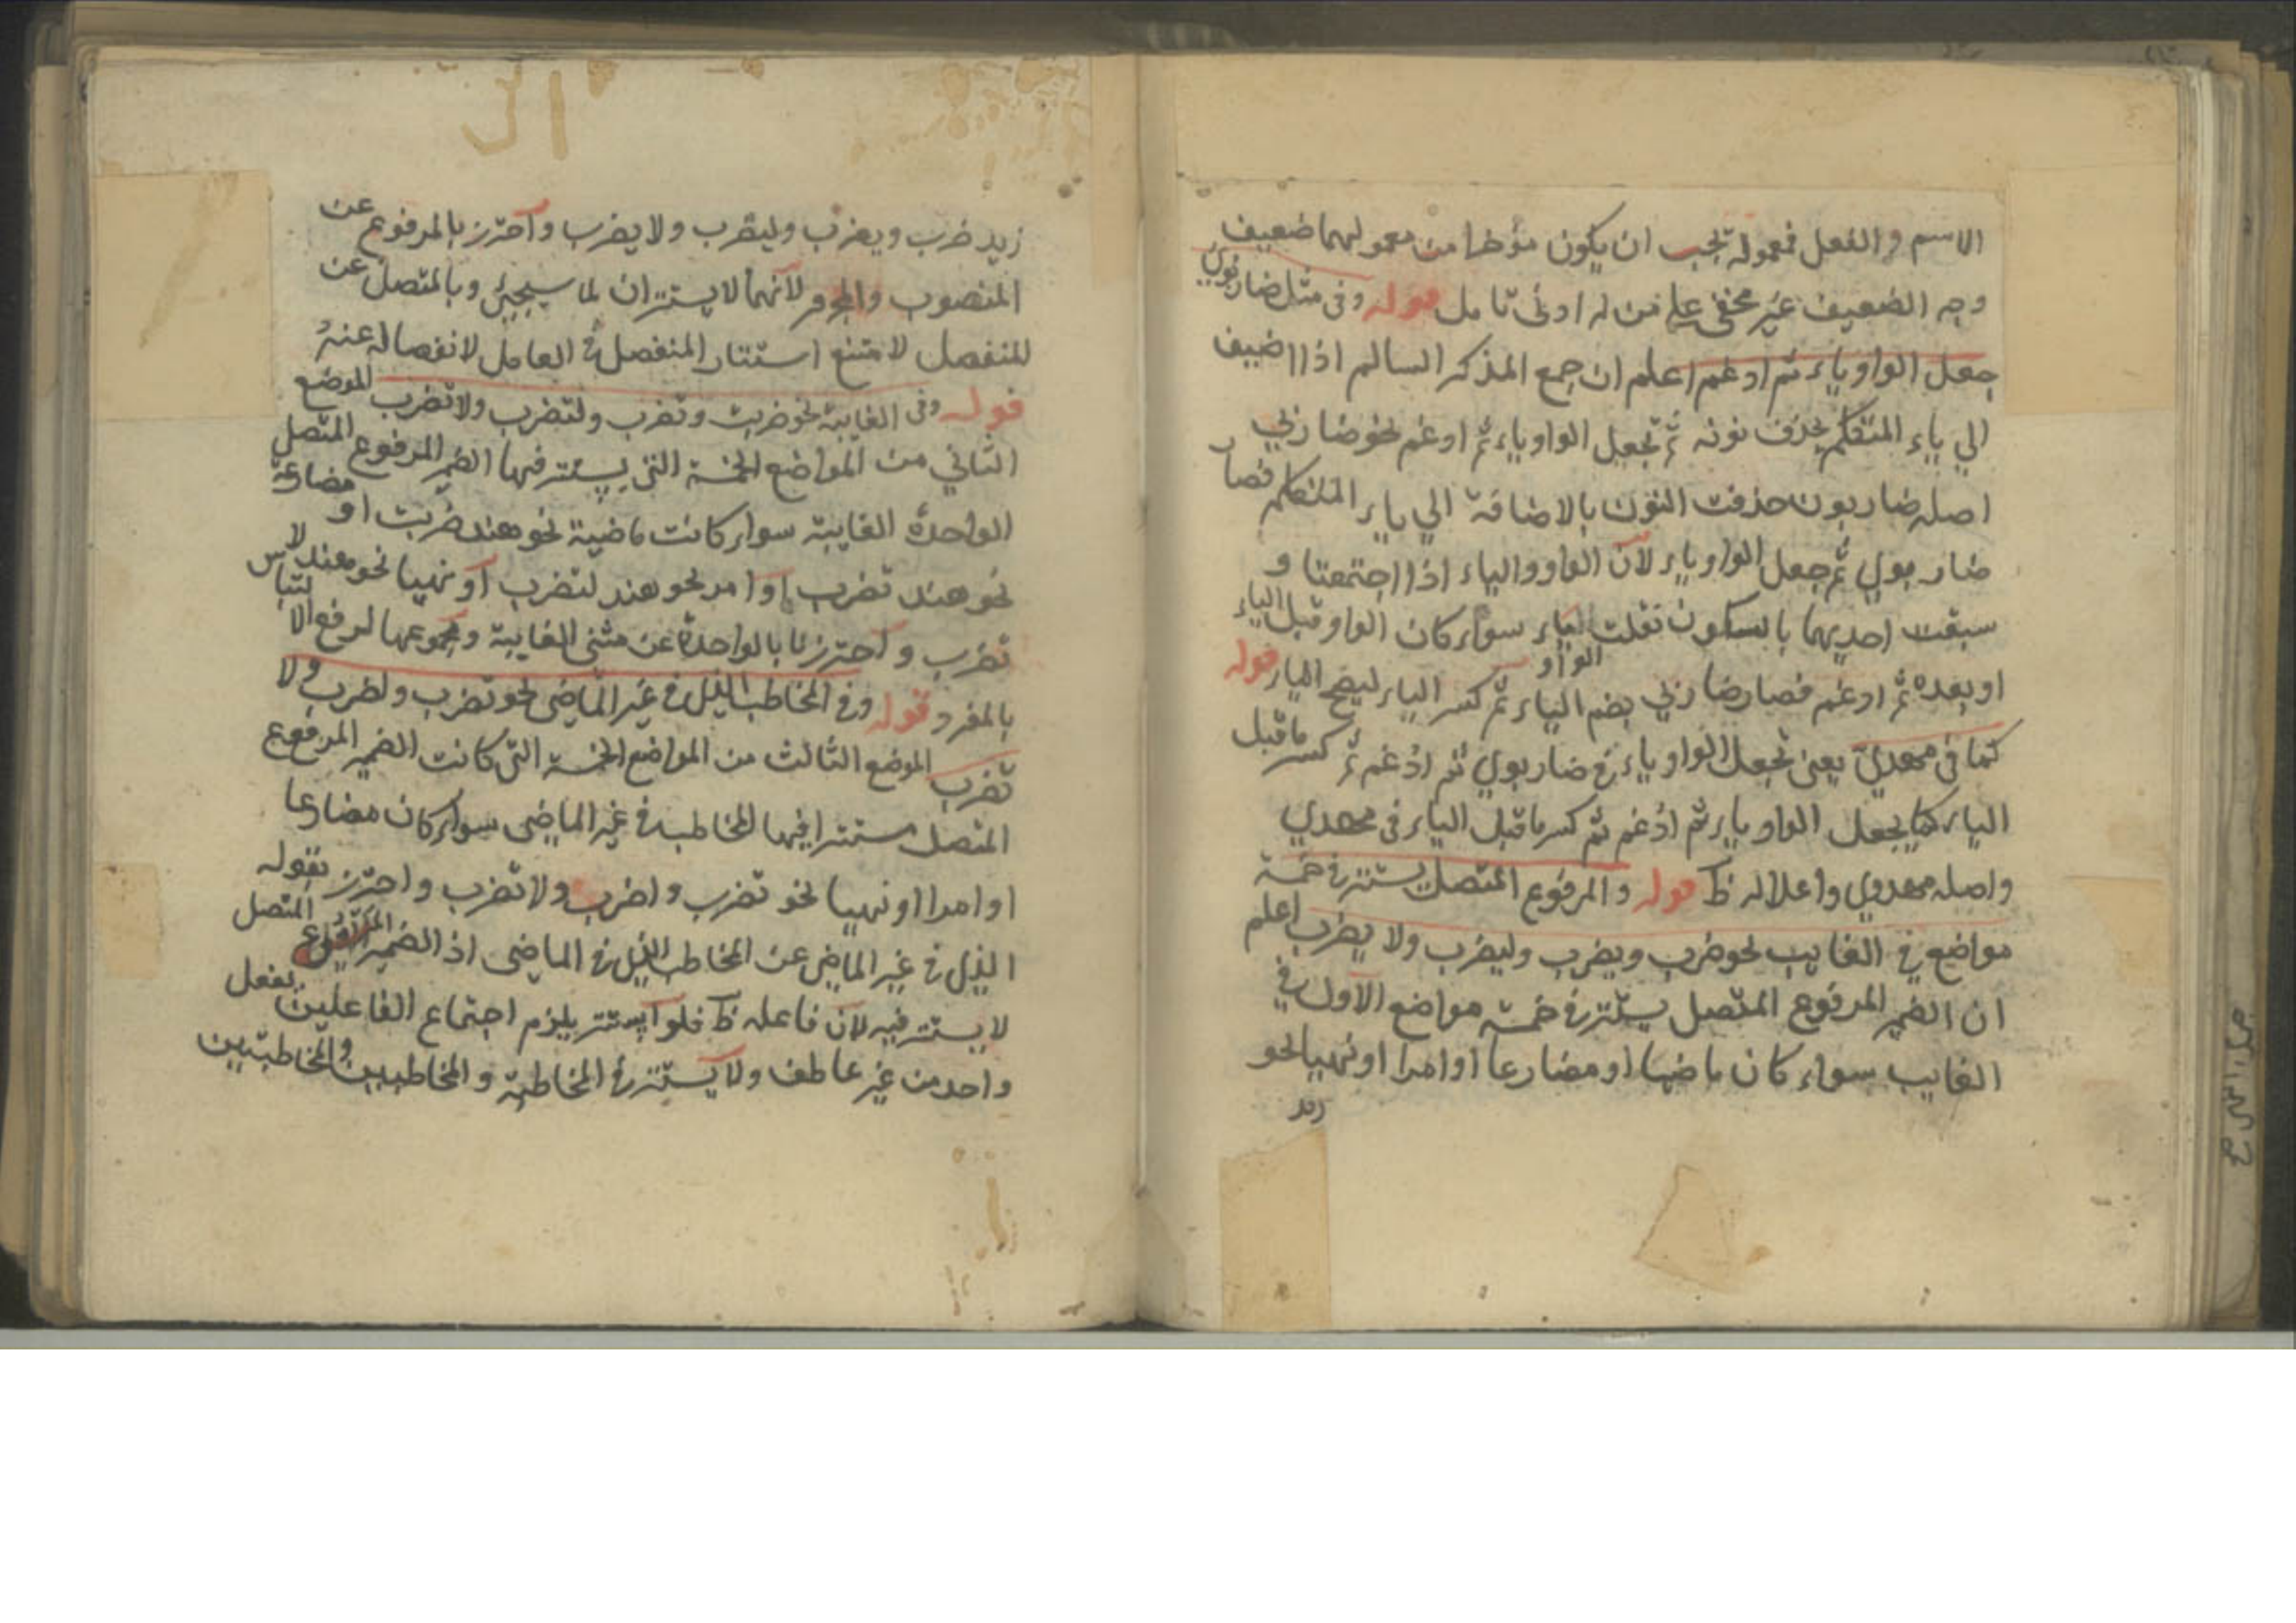 الاسم والفعل فمعموله يجب ان يكون مؤخرا من معموليهما ضعيف
وجه الضعيف غير مخفى على من له ادنى تامل قوله وفى مثل ضاربوي
جعل الواو ياء ثم ادغم اعلم ان جمع المذكر السالم اذا اضيف
الي ياء المتكلم يحذف نونه ثم تجعل الواو ياء ثم ادغم نحو ضاربي
اصله ضاربون حذفت النون بالاضافة الي ياء المتكلم فصار
ضاربوي ثم جعل الواو ياء لان الواو والياء اذا اجتمعتا و
سبقت احديهما بالسكون نقلت الواو ياء سواء كان الواو قبل الياء
او بعده ثم ادغم فصار ضاربي بضم الياء ثم كسر الياء ليصح الياء قوله
كما فى مهدي يعنى تجعل الواو ياء فى ضاربوي ثم ادغم ثم كسر ما قبل
الياء كما يجعل الواو ياء ثم ادغم ثم كسر ما قبل الياء فى مهدي
واصله مهدوي واعلاله ظ قوله والمرفوع المتصل يستتر فى خمسة
مواضع فى الغايب نحو ضرب ويضرب وليضرب ولا يضرب اعلم
ان الضمير المرفوع المتصل يستتر فى خمسة مواضع الاول فى
الغايب سواء كان ماضيا او مضارعا او امرا او نهيا نحو
زيد
زيد ضرب ويضرب وليضرب ولا يضرب واحترز بالمرفوع عن
المنصوب والمجرور لانهما لا يستتران لما سيجيئ وبالمتصل عن
المنفصل لامتنع استتار المنفصل فى العامل لانفصاله عنه
قوله وفى الغايبة نحو ضربت وتضرب ولتضرب ولا تضرب الموضع
الثاني من المواضع الخمسة التى يستتر فيها الضمير المرفوع المتصل
الواحدة الغايبة سواء كانت ماضية نحو هند ضربت او مضارعة
نحو هند تضرب او امر نحو هند لتضرب او نهيا نحو هند لا
تضرب واحترزنا بالواحدة عن مثنى الغايبة ومجموعها لرفع الالتباس
بالمفرد قوله وفى المخاطب الذى فى غير الماضى نحو تضرب واضرب ولا
تضرب الموضع الثالث من المواضع الخمسة التى كانت الضمير المرفوع
المتصل مستترا فيها المخاطب فى غير الماضى سواء كان مضارعا
او امرا او نهيا نحو تضرب واضرب ولا تضرب واحترز بقوله
الذى فى غير الماضى عن المخاطب الذى فى الماضى اذ الضمير المرفوع المتصل
لا يستتر فيه لان فاعله ظ فلو استتر يلزم اجتماع الفاعلين بفعل
واحد من غير عاطف ولا يستتر فى المخاطبة والمخاطبين والمخاطبتين